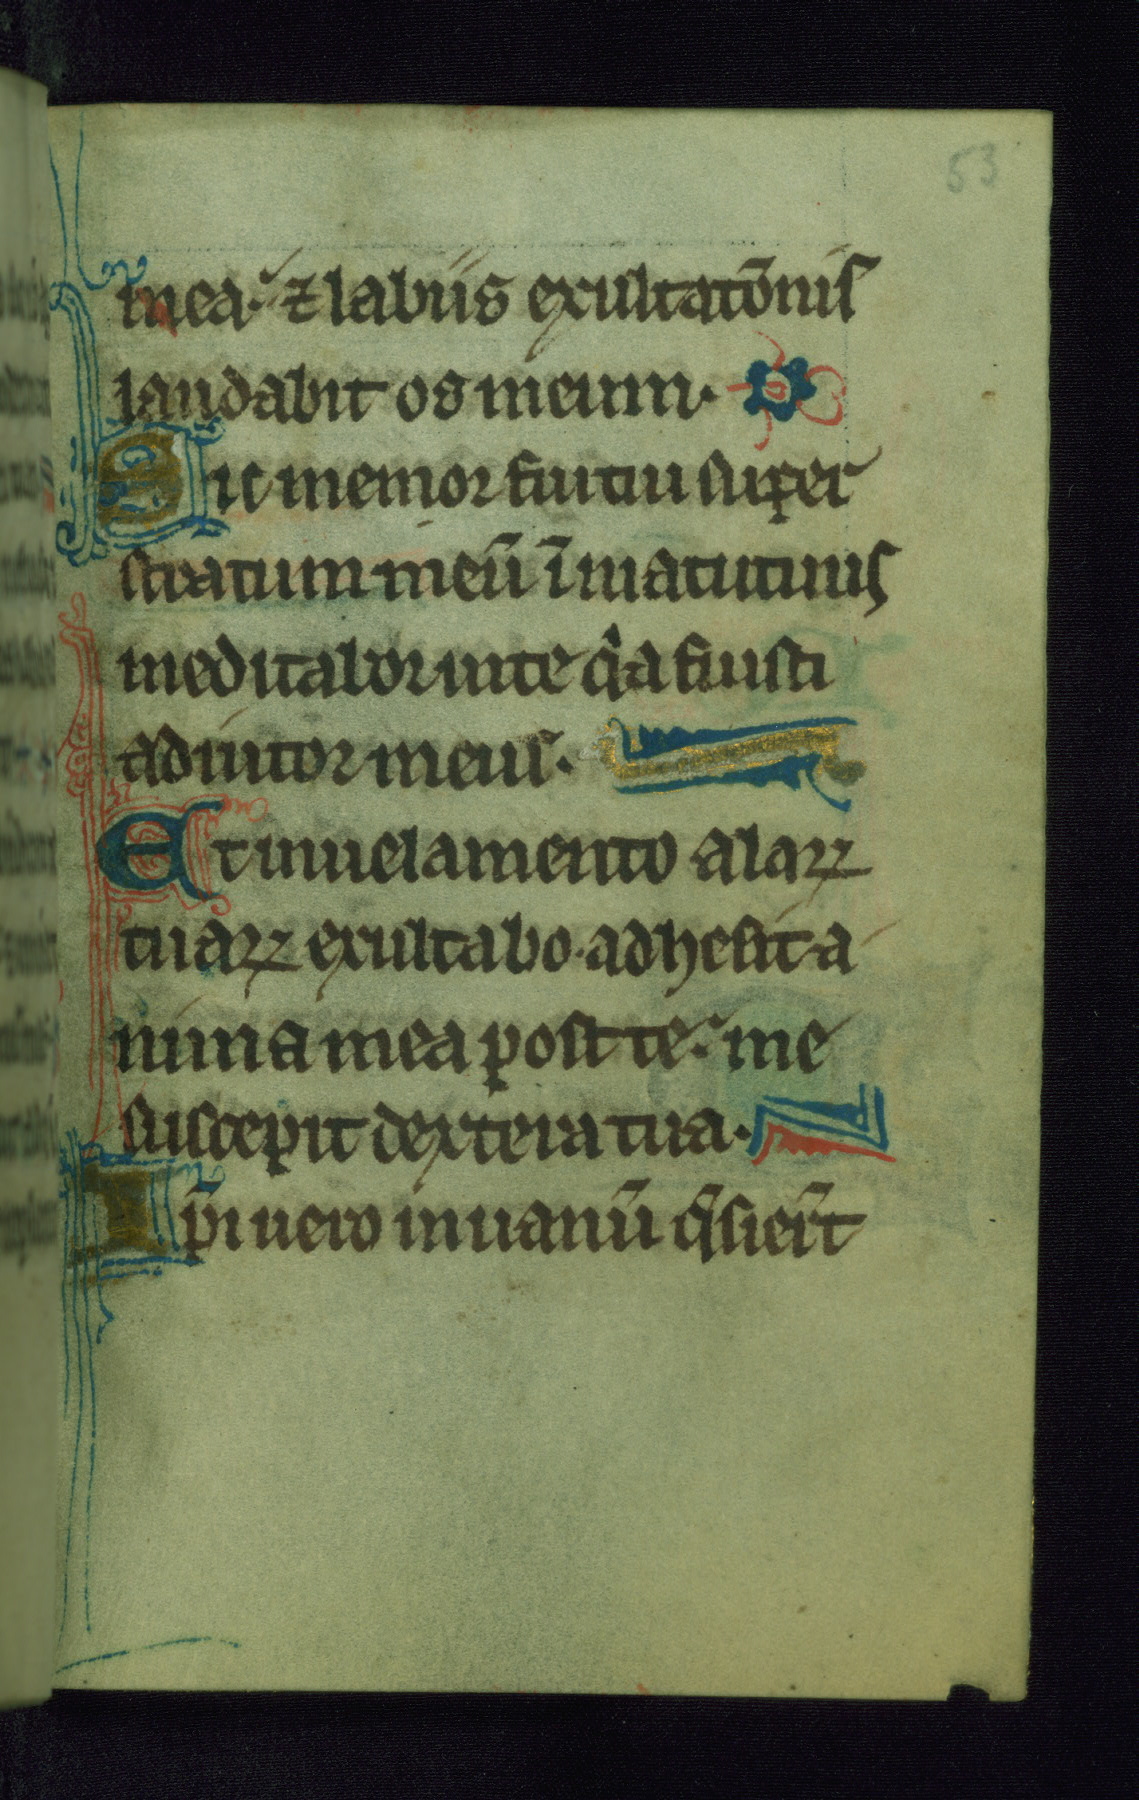 53
mea. ⁊ labiis exultatōnis
laudabit os meum.
Sic memor fui tui super
stratum meū ī matutinis
meditabor in te qͥa fuisti
adiutor meus.
Et in uelamento alaꝝ
tuaꝝ exultabo. adhesit a
nima mea post te. me
suscepit dextera tua.
Ip̄i uero in uanū q̄sier̄t